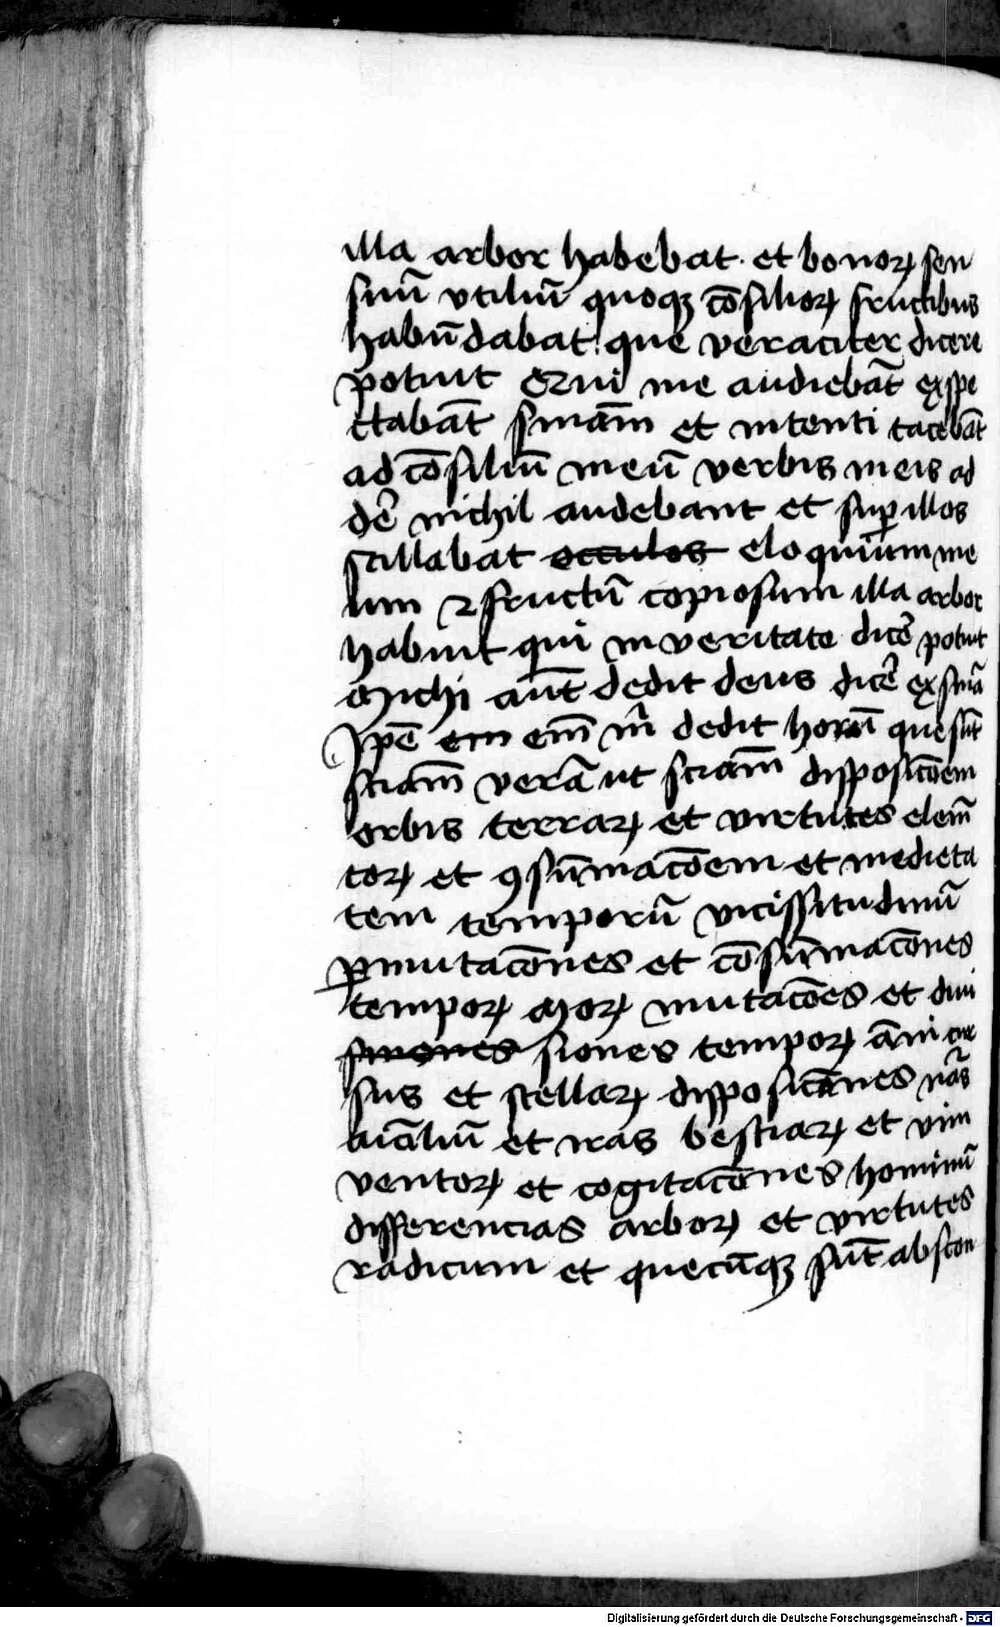 illa arbor habebat · et bonoꝝ sen
suū vtiliū quoqꝫ cōsilioꝝ fructibus
habūdabat · que veraciter dicere
potuit Qui me audiebāt exspe
ctabāt sn̄iam et intenti tacebāt
ad cōsiliū meū verbis meis ad
de᷑ nichil audebant et suꝑ illos
stillabat occulos eloquium me
um ⁊ fructū copiosum illa arbor
habuit qui in veritate dice᷑ potuit
Michi aūt dedit deus dice᷑ ex sn̄ia
Ipe᷑ em em̄ m̄ dedit horū que sūt
sciam̄ verā ut sciam̄ disposicōem
orbis terraꝝ et virtutes elem̄
toꝝ et ꝯsūmacōem et medieta
tem temporū vicissitudinū
ꝑmutacōnes et cōsūmacōnes
tempoꝝ Moꝝ mutacōes et diui
siones tempoꝝ āni cur
sus et stellaꝝ disposicōnes nās
aīaliū et iras bestiaꝝ et vim
ventoꝝ et cogitacōnes hominū
differencias arboꝝ et virtutes
radicum et quecūqꝫ sūt abscon
Digitalisierung gefördert durch die Deutsche Forschungsgemeinschaft - DFG